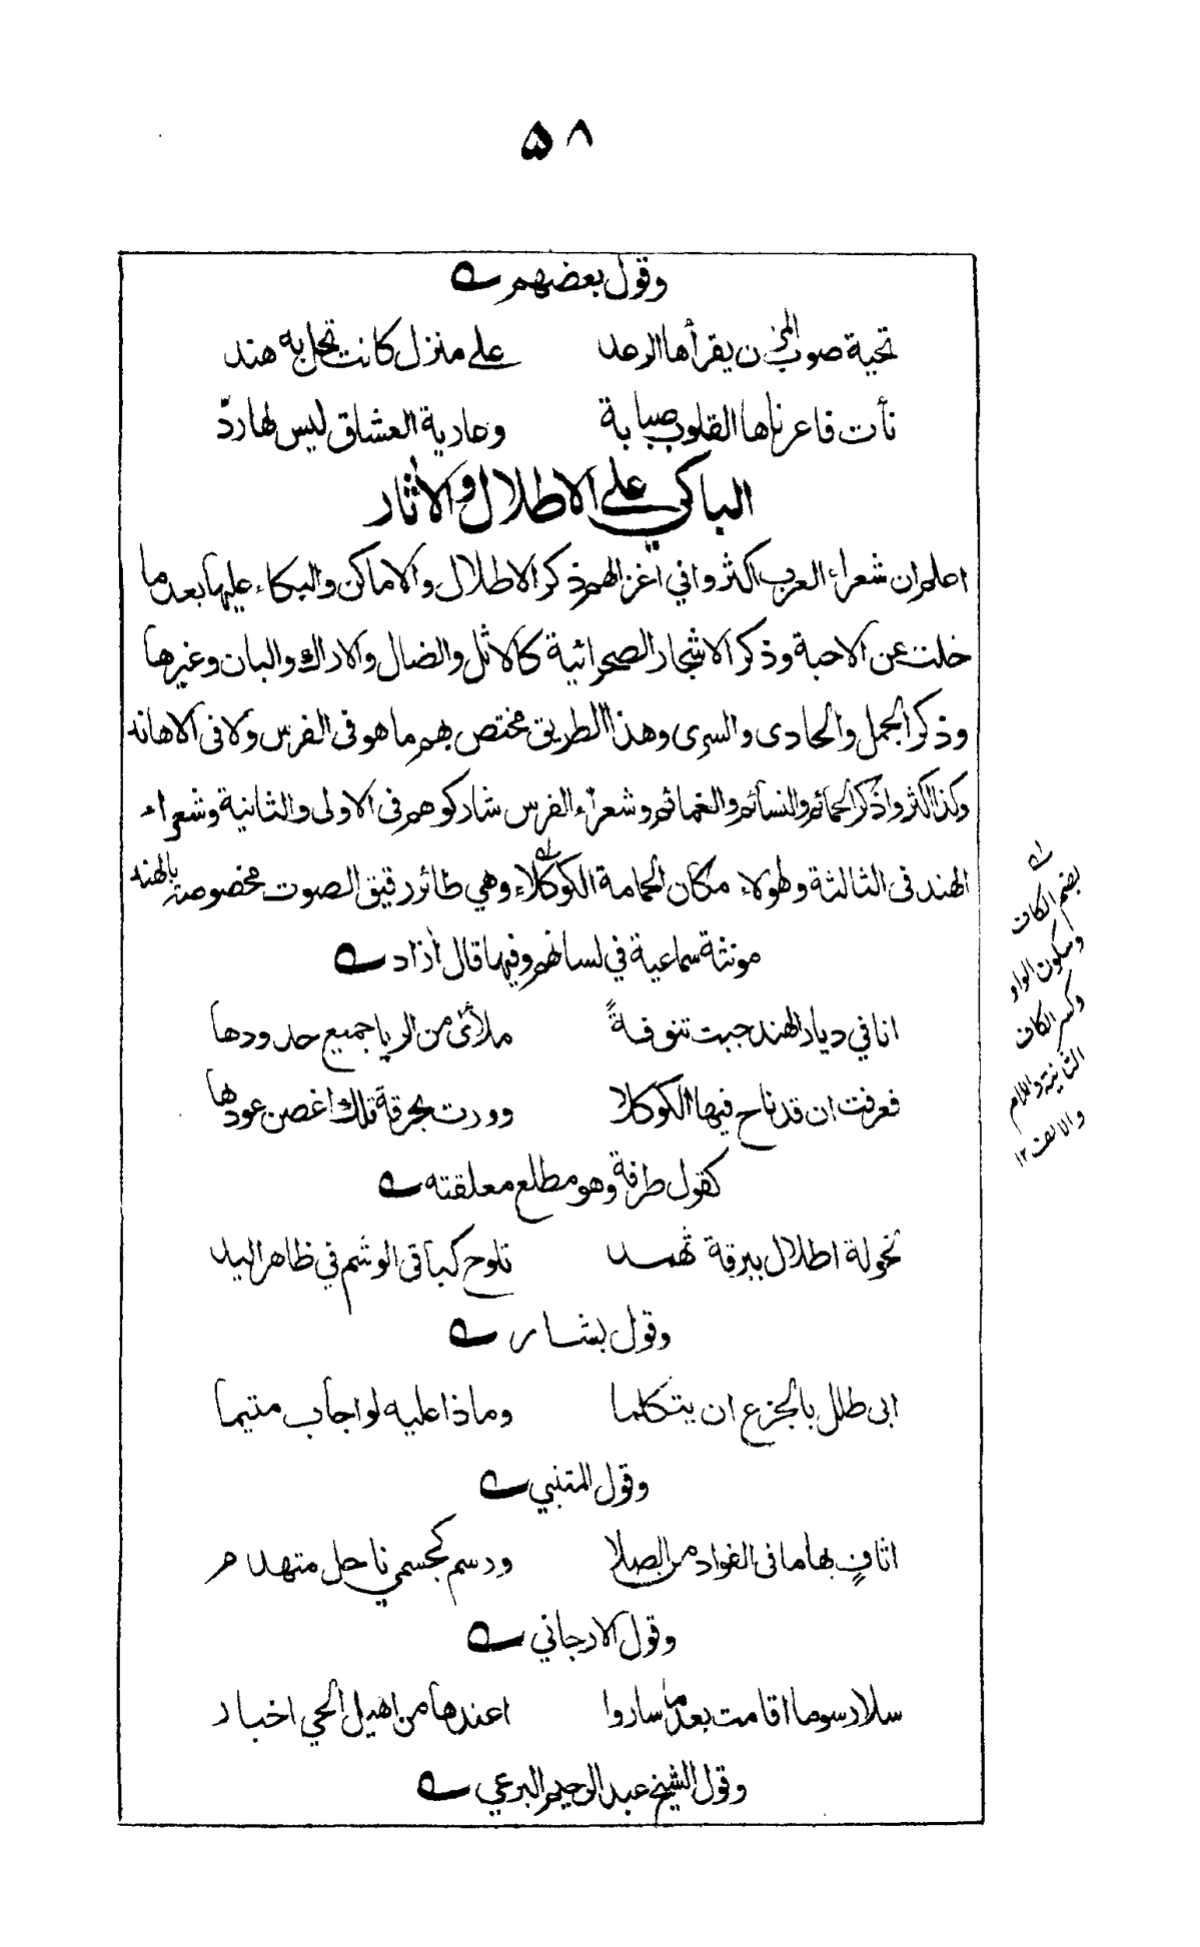 ۵۸
وقول بعضهم
تحية صوب المزن يقرأها الرعد على منزل كانت تحل به هند
نأت فاعرناها القلوب صبابة وعارية العشاق ليس لها ردّ
الباكي على الاطلال والأثار
اعلم ان شعراء العرب اكثروا في أغزالهم ذكر الاطلال والاماكن والبكاء عليها بعد ما
خلت عن الاحبة وذكر الاشجار الصحرائية كالاثل والضال والاراك والبان وغيرها
وذكر الجمل والحادى والسرى وهذا الطريق مختص بهم ما هو فى الفرس ولا فى الاهاند
وكذا اكثروا ذكر الحمائم والنسائم والغمائم وشعراء الفرس شاركوهم فى الاولى والثانية وشعراء
الهند فى الثالثة ولهولاء مكان الحمامة الكوكلاء وهي طائر رقيق الصوت مخصوصة بالهند
مونثة سماعية في لسانهم وفيها قال أزاد
انا في ديار الهند جبت تنوفةً ملأى من الريا جميع حدودها
فعرفت ان قد ناح فيها الكوكلا وورت بحرقة تلك اغصن عودها
كقول طرفة وهو مطلع معلقته
لخولة اطلال ببرقة ثهمد تلوح كباقى الوشم في ظاهر اليد
وقول بشار
ابى طلل بالجزع ان يتكلما وماذا عليه لو اجاب متيما
وقول المتنبي
اثافٍ بها ما فى الفواد من الصلا ورسم كجسمي ناحل متهدم
وقول الارجاني
سلا رسوما اقامت بعد ما ساروا اعندها من اهيل الحي اخبار
وقول الشيخ عبد الرحيم البرعي
بضم الكاف
وسكون الواو
وكسر الكاف
الثانية واللام
والالف ۱۲